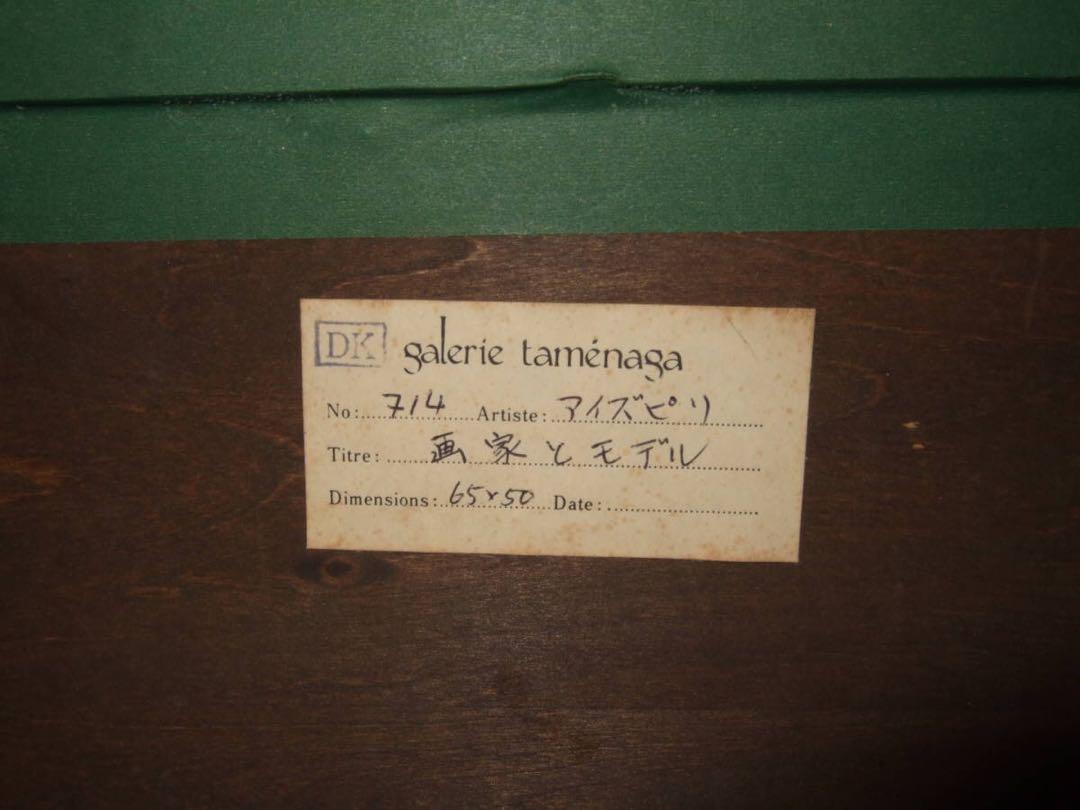 DK galerie taménaga
No: 714 Artiste: アイズピリ
Titre: 画家とモデル
Dimensions: 65×50 Date: